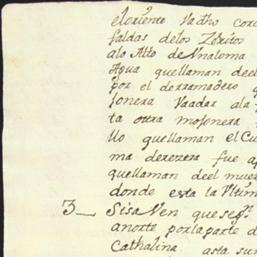 el oriente dadho cor
faldas delos Zerritos
alo Alto de Vnaloma
Agua quellaman deel
por el derramadero
jonera Vaadar ala
ta outra mojonera
llo quellaman el Cu
ma derezera fue a
quellaman deel mue
donde esta la Vltim
3_ Sisa Ven que seg.
anorte porlaparte d
Cathalina asta su